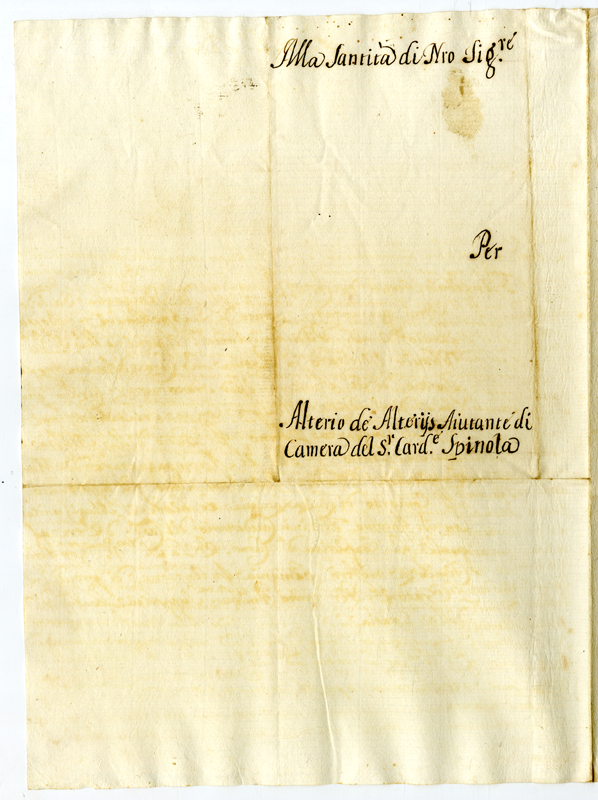 Alla Santità di Nro Sig.re
Per
Alterio de Alterijs Aiutante di
Camera del S.r Card.e Spinola